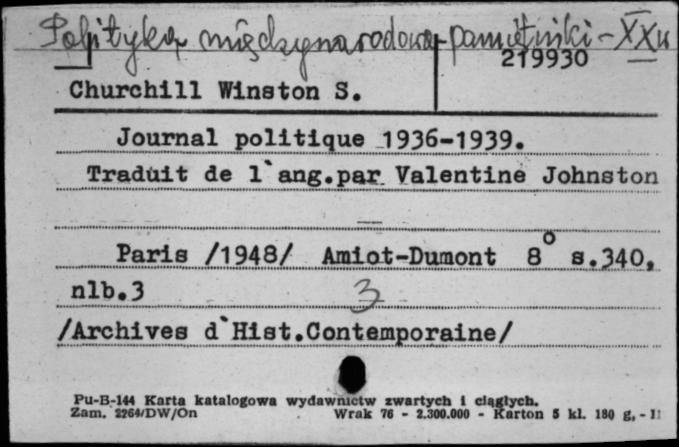 Polityka międzynarodowa-pamiętniki-XXw
219930
Churchill Winston S.
Journal politique 1936-1939.
Traduit de l`ang.par Valentine Johnston
Paris /1948/ Amiot-Dumont 8° s.340,
nlb.3
3
/Archives d`Hist.Contemporaine/
Pu-B-144 Karta katalogowa wydawnictw zwartych i ciągłych.
Zam. 2264/DW/On Wrak 76 - 2.300.000 - Karton 5 kl. 180 g, -